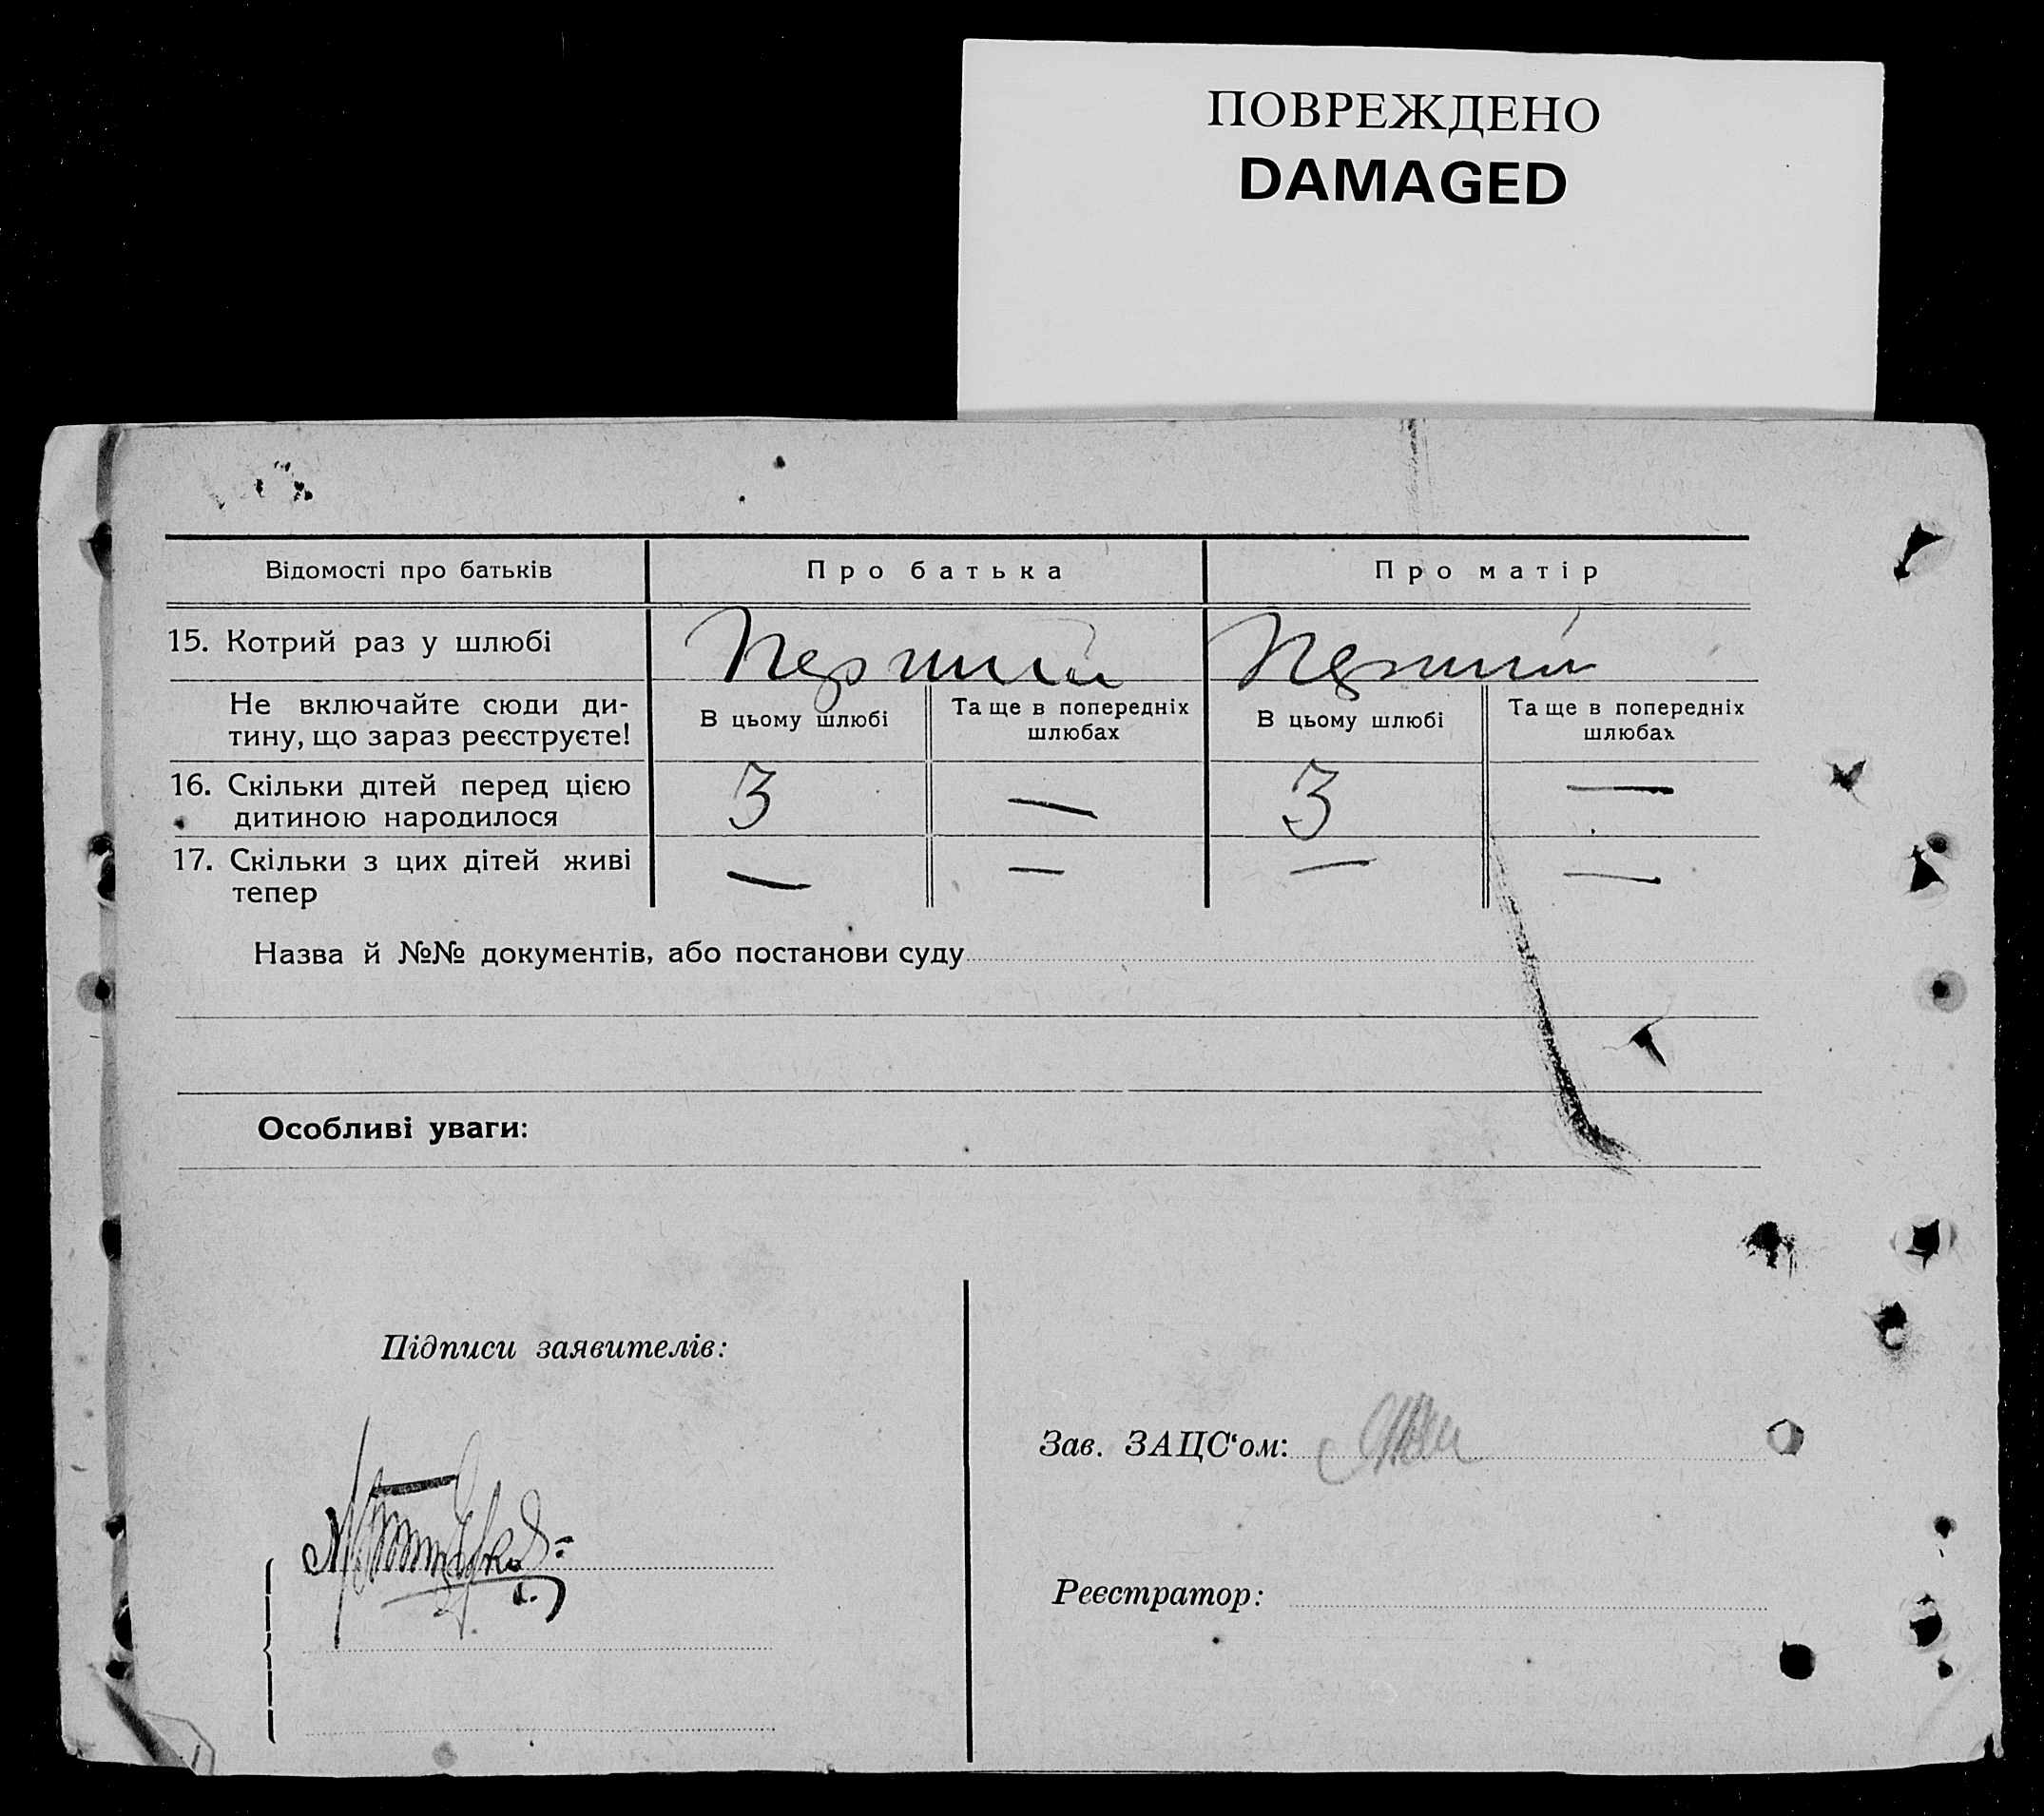 ПОВРЕЖДЕНО
DAMAGED
Відомості про батьків
Про батька
Про матір
15. Котрий раз у шлюбі
Перший
Перший
Не включайте сюди ди-
тину, що зараз реєструєте!
В цьому шлюбі
Та ще в попередніх
шлюбах
В цьому шлюбі
Та ще в попередніх
шлюбах
16. Скільки дітей перед цією
дитиною народилося
3
—
3
—
17. Скільки з цих дітей живі
тепер
—
—
—
—
Назва й №№ документів, або постанови суду
Особливі уваги:
Підписи заявителів:
Зав. ЗАЦС‘ом:
Реєстратор: